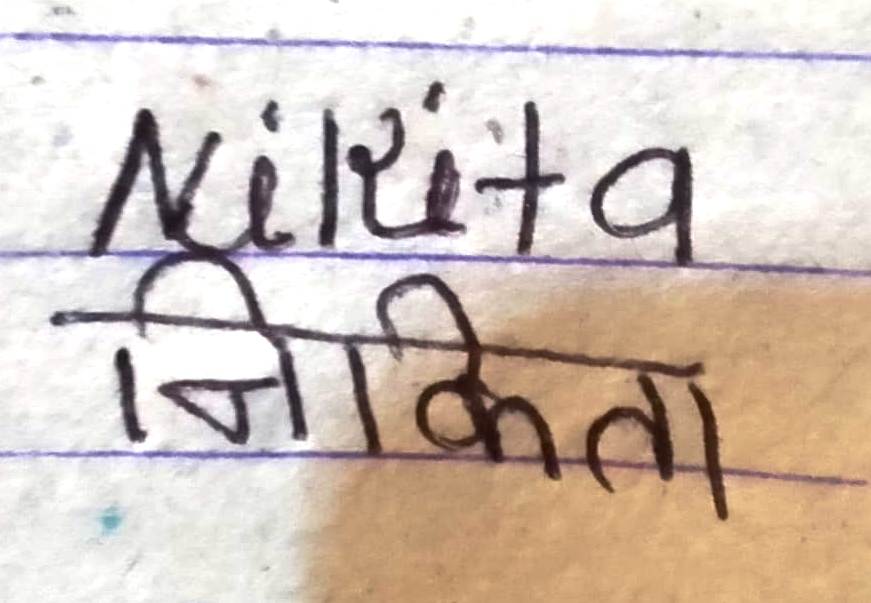 Nikita
निकिता